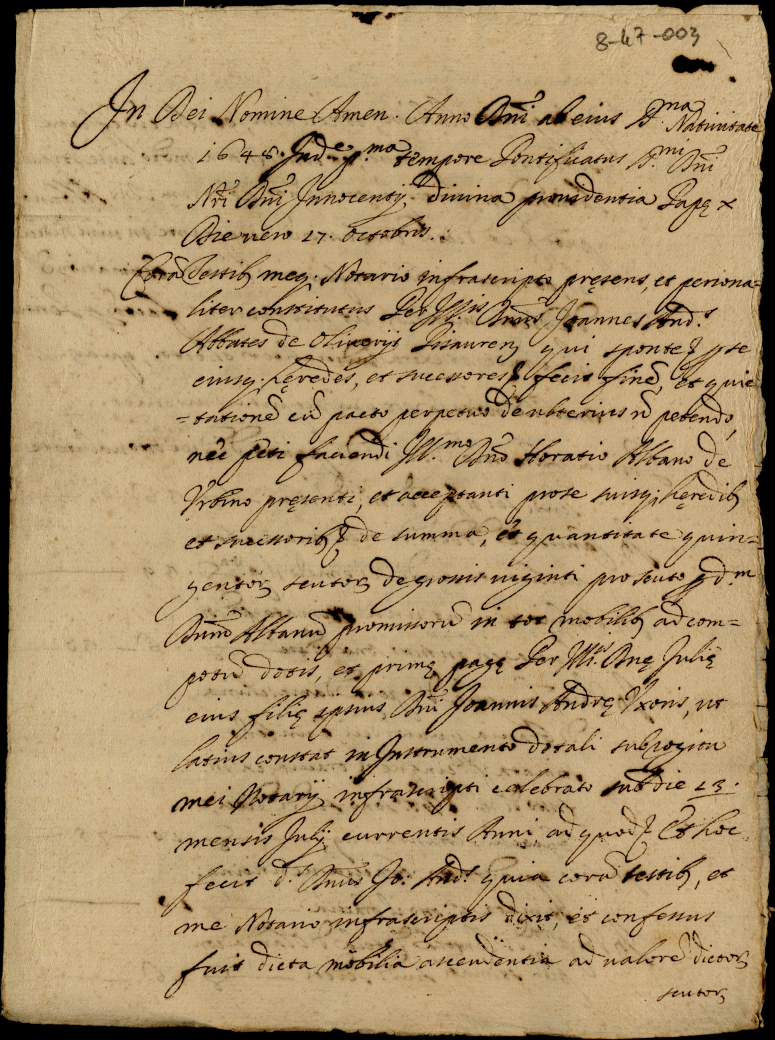 8-47-003
In Dei Nomine Amen. Anno Dñi ab eius D.ma Nativitate
1648. Ind.e p.ma tempore Pontificatus D.mi Dñi
Nri Dñi Innocentij divina providentia Papę X
Die vero 17. octobris.
Corã Testib; meq; Notario infrascripto pręsens, et persona=
liter constitutus Per Ill.is Dnus Joannes And.s
Abbates de Oliverijs Pisauren qui sponte p se
eiusq; hęredes, et successores fecit finẽ, et quie
=tationẽ cũ pacto perpetuo de ulterius nõ petendo,
nec peti faciendi Ill.mo Dño Horatio Albano de
Urbino pręsenti, et acceptanti pro se suisq; hęredib;
et successorib; de summa, et quantitate quin=
gentor scutor de grossis viginti pro scuto p d.m
Dnum Albanũ promissorũ in tot mobilib; ad com=
potũ dotis, et primę pagę Per Ill.is Dnę Julię
eius filię ipsius Dñi Joannis Andrę Uxoris, ut
latius constat in Instrumento dotali subrogitu
mei Notarij infrascripti celebrato sub die 13.
mensis Julij currentis Anni, ad quod Et hoc
fecit d.s Dnus Jo: And.s quia corã testib;, et
me Notario infrascriptis dixit, et confessus
fuit dicta mobilia ascendentia ad valorẽ dictor
scutor